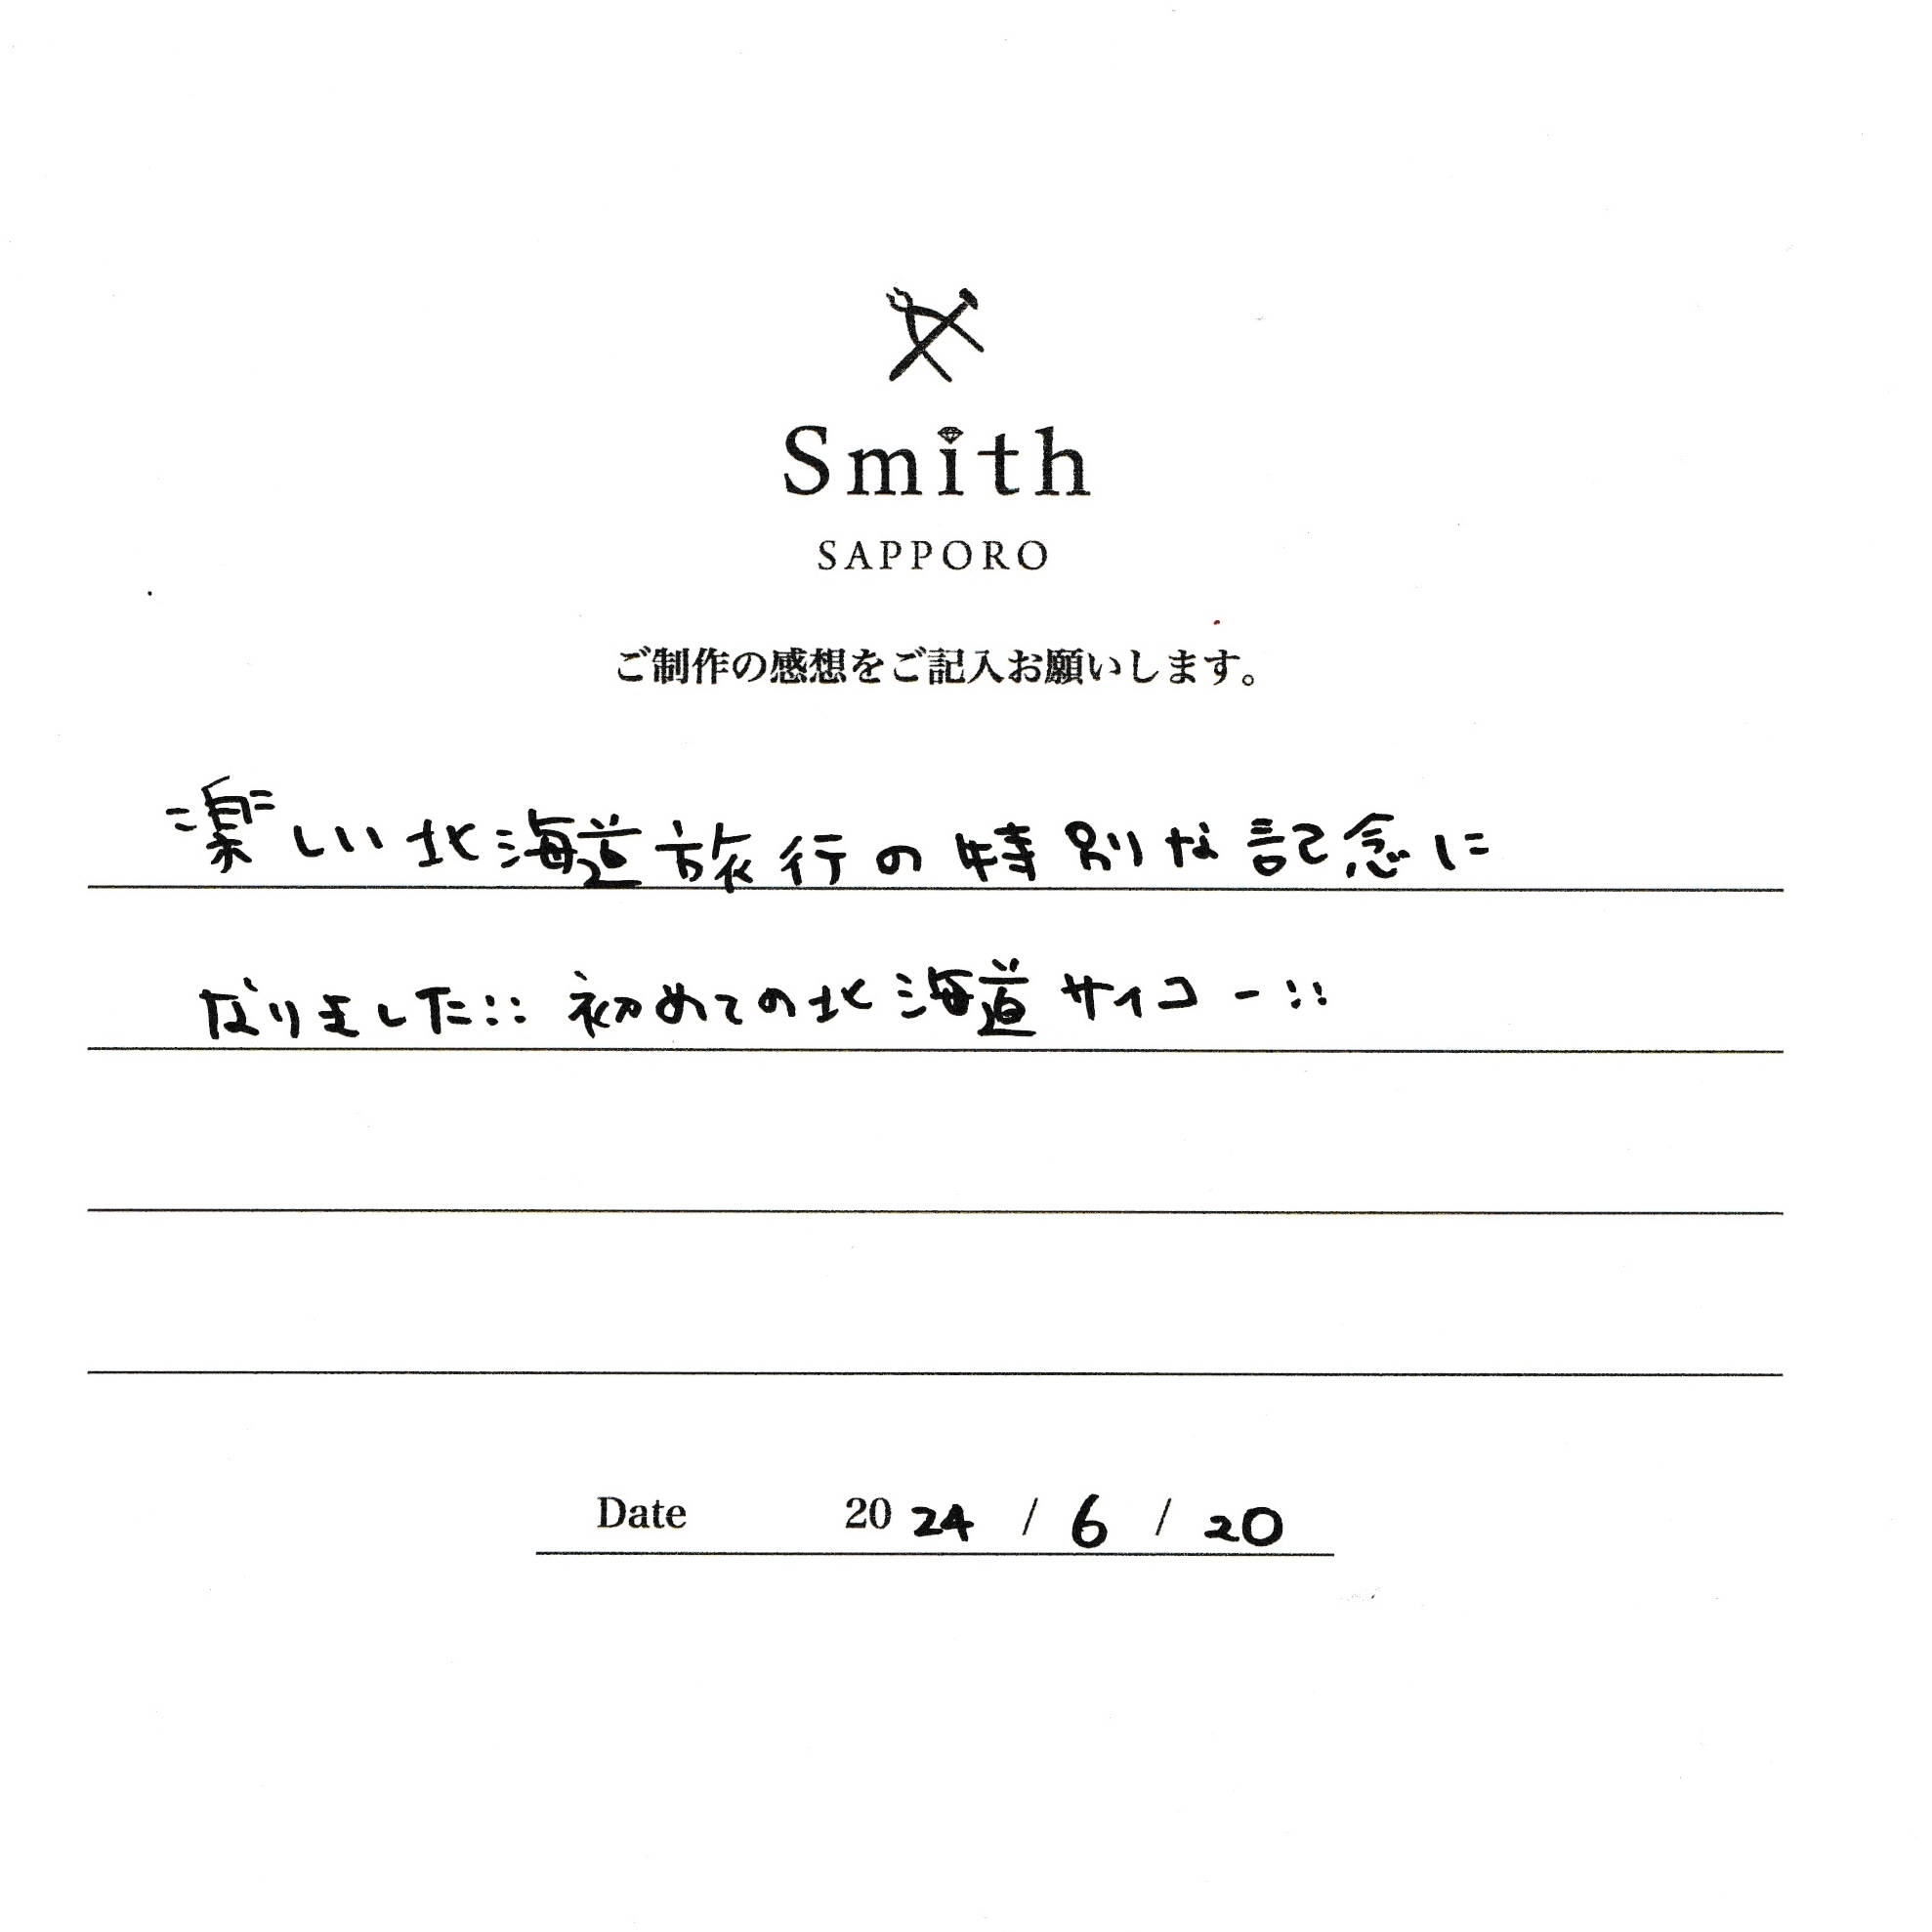 Smith
SAPPORO
ご制作の感想をご記入お願いします。
楽しい北海道旅行の特別な記念に
なりました!! 初めての北海道サイコー!!
Date 2024 / 6 / 20